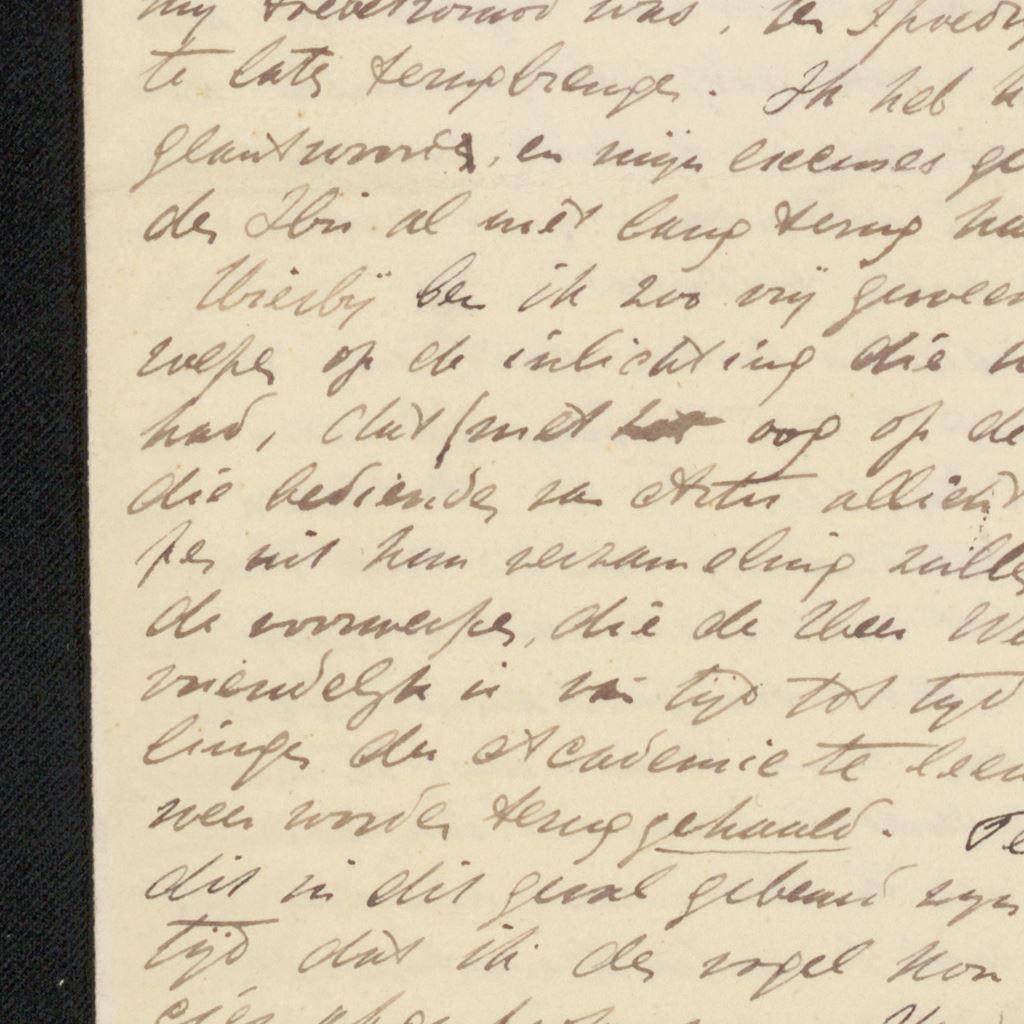 my was, den spoedig
te laten terugbrengen. Ik heb h
geantwoord, en mijn excuses ge
den Ibis al niet lang terug ha
Hierbij ben ik zoo vrij geweest
op de inlichting die
had, dat (met oog op de
die bedienden van Artis allicht
pen uit hun verzameling zullen
de voorwerpen, die de Heer We
vriendelijk is van tijd tot tijd
lingen der Academie te leen
weer worden teruggehaald. Te
dit in dit geval gebeurd zijn
tijd dat ik den vogel kon